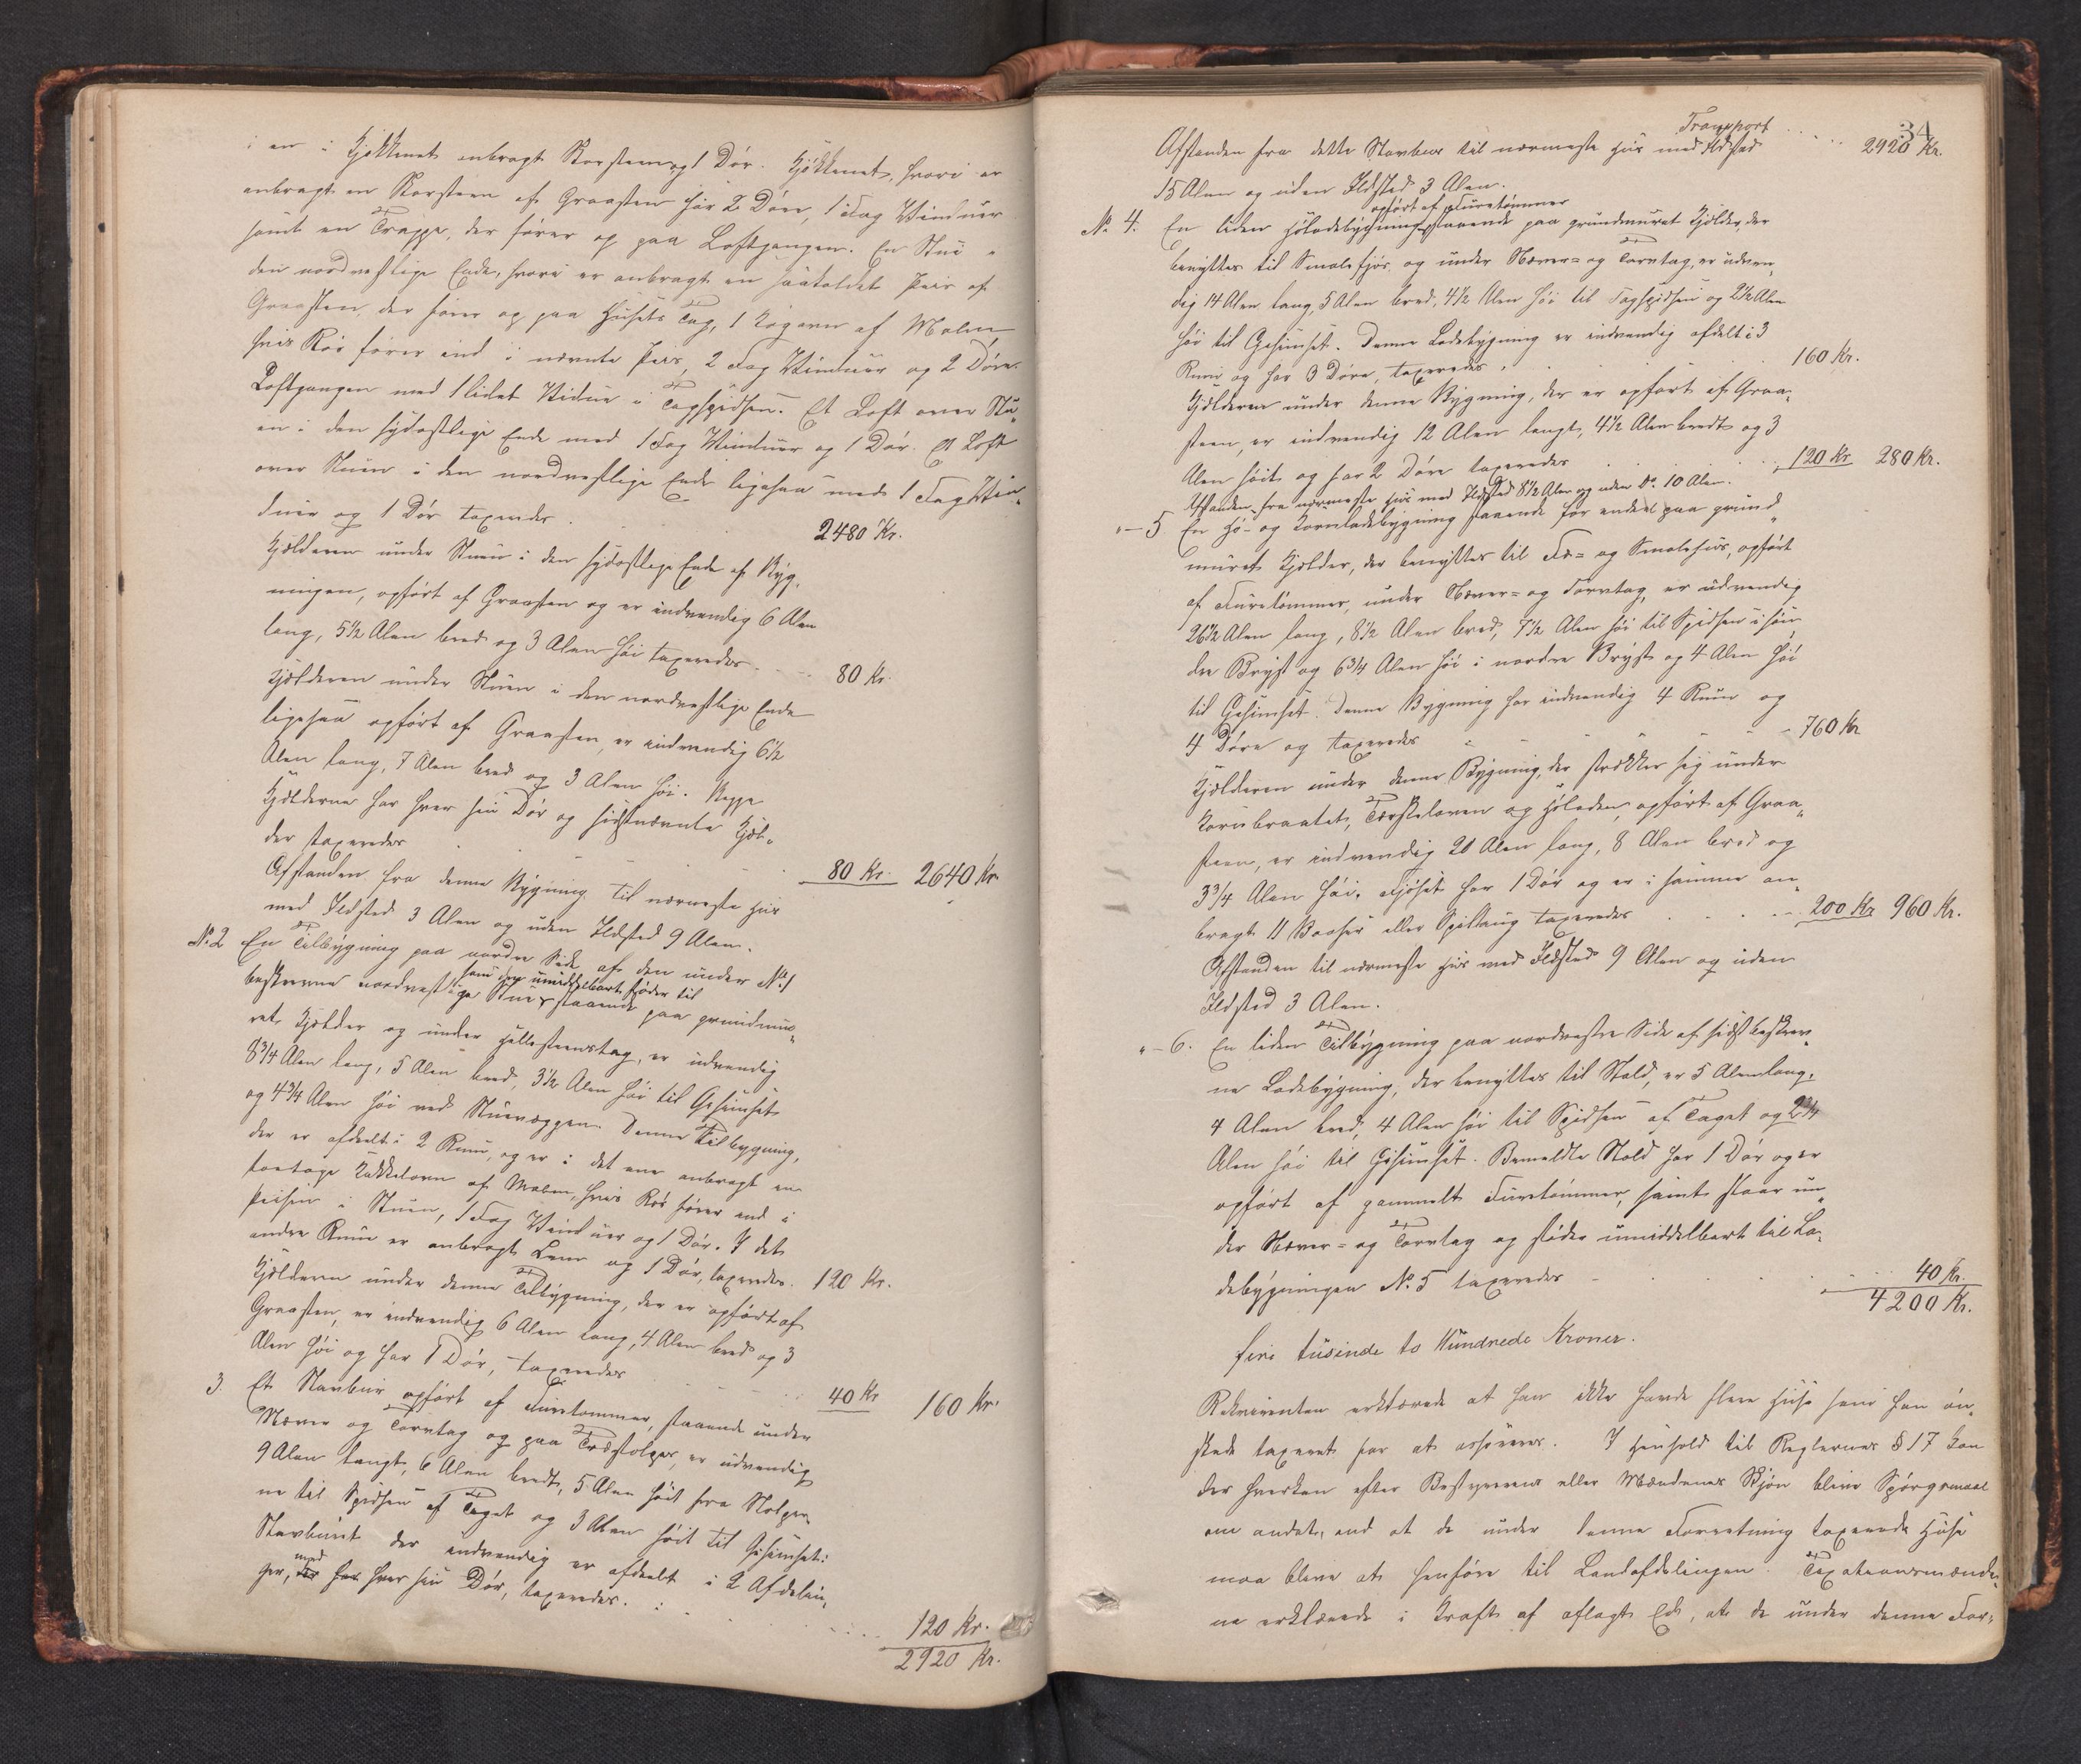 i en i Kjøkkenet anbragt Skorsteen og 1 Dør. Kjøkkenet, hvori er
anbragt en Skorsteen af Graasten har 2 Døre, 1 Fag Vinduer
samt en Trappe, der fører op paa Loftgangen. En Stue i
den nordvestlige Ende, hvori er anbragt en saakaldet Peis af
Graasten, der fører op paa Husets Tag, 1 Kogeovn af Malm,
hvis Rør fører ind i nævnte Peis, 2 Fag Vinduer og 2 Døre.
Loftgangen med 1 lidet Vidue i Tagspidsen. Et Loft over Stu-
en i den sydøstlige Ende med 1 Fag Vinduer og 1 Dør. Et Loft
over Stuen i den nordvestlige Ende ligesaa med 1 Fag Vin-
duer og 1 Dør taxeredes . 2480 Kr.
Kjælderen under Stuen i den sydøstlige Ende af Byg-
ningen, opført af Graasten og er indvendig 6 Alen
lang, 5½ Alen bred og 3 Alen høi taxeredes 80 Kr.
Kjælderen under Stuen i den nordvestlige Ende
ligesaa opført af Graasten, er indvendig 6½
Alen lang, 7 Alen bred og 3 Alen høi. Begge
Kjælderne har hver sin Dør og sidstnævnte Kjæl-
der taxeredes . 80 Kr. 2640 Kr
Afstanden fra denne Bygning til nærmeste Huus
med Ildsted 3 Alen og uden Ildsted 9 Alen.
No 2 En Tilbygning paa nordre Side af den under No 1
som umiddelbart støder til
beskrevne nordvestlige Stue staaende paa grundmu-
ret Kjælder og under Hellesteenstag, er udvendig
8¾ Alen lang, 5 Alen bred, 3½ Alen høi til Gesimset
og 4¾ Alen høi ved Stuevæggen. Denne Tilbygning,
der er afdeelt i 2 Rum, og er i det ene anbragt en
toetages Kakkelovn af Malm, hvis Rør fører ind i
Peisen i Stuen, 1 Fag Vinduer og 1 Dør. I det
andre Rum er anbragt Lem og 1 Dør, taxeredes. 120 Kr.
Kjælderen under denne Tilbygning, der er opført af
Graasten, er indvendig 6 Alen lang, 4 Alen bred og 3
Alen høi og har 1 Dør, taxeredes 40 Kr 160 Kr.
3. Et Stavbur opført af Furetømmer, staaende under
Næver og Torvtag og paa Træstolper, er udvendig
9 Alen langt, 6 Alen bredt, 5 Alen høit fra Stolper-
ne til Spidsen af Taget og 3 Alen høit til Gesimset.
Stavburet der indvendig er afdeelt i 2 Afdelin-
med
ger, der har hver sin Dør, taxeredes. 120 Kr.
2920 Kr.
34
Transport 2920 Kr.
Afstanden fra dette Stavbur til nærmeste Huus med Ildsted
15 Alen og uden Ildsted 3 Alen.
opført af Furetømmer
No 4. En liden Høladebygning staaende paa grundmuret Kjælder, der
benyttes til Smalefjøs og under Næver- og Torvtag, er udven-
dig 14 Alen lang, 5 Alen bred, 4½ Alen høi til Tagspidsen og 2½ Alen
høi til Gesimset. Denne Ladebygning er indvendig afdelt i 3
Rum og har 3 Døre, taxeredes . 160 Kr.
Kjælderen under denne Bygning, der er opført af Graa-
steen, er indvendig 12 Alen langt, 4½ Alen bredt og 3
Alen høit og har 2 Døre taxeredes 120 Kr 280 Kr.
Afstanden fra nærmeste Huus med Ildsted 8½ Alen og uden do. 10 Alen.
"- 5 En Hø- og Kornladebygning staaende for endeel paa grund-
muret Kjælder, der benyttes til Fæ- og Smalehuus, opført
af Furetømmer, under Næver- og Torvtag, er udvendig
26½ Alen lang, 8½ Alen bred, 7½ Alen høi til Spidsen i søn-
dre Bryst og 6¾ Alen høi i nordre Bryst og 4 Alen høi
til Gesimset. Denne Bygning har indvendig 4 Rum og
4 Døre og taxeredes 760 Kr
Kjælderen under denne Bygning, der strækker sig under
Kornbraatet, Tærskeloven og Høladen, opført af Graa-
steen, er indvendig 20 Alen lang, 8 Alen bred og
3¾ Alen høi. Fjøset har 1 Dør og er i samme an-
bragt 11 Baaser eller Spiltaug taxeredes 200 Kr 960 Kr.
Afstanden til nærmeste Huus med Ildsted 9 Alen og uden
Ildsted 3 Alen.
"- 6. En liden Tilbygning paa nordvestre Side af sidst beskrev-
ne Ladebygning, der benyttes til Stald, er 5 Alen lang,
4 Alen bred, 4 Alen høi til Spidsen af Taget og 2¾
Alen høi til Gesimset. Bemeldte Stald har 1 Dør og er
opført af gammelt Furetømmer, samt staar un-
der Næver- og Torvtag og støder umiddelbart til La-
debygningen No 5 taxeredes 40 Kr.
4200 Kr.
fire tusinde to Hundrede Kroner.
Rekvirenten erklærede at han ikke havde flere Huse som han øn-
skede taxeret for at assureres. I Henhold til Reglernes § 17 kan
der hverken efter Bestyrerens eller Mændenes Skjøn blive Spørgsmaal
om andet, end at de under denne Forretning taxerede Huse
maa blive at henføre til Landafdelingen. Taxationsmænde-
ne erklærede i Kraft af aflagt Ed, at de under denne For-